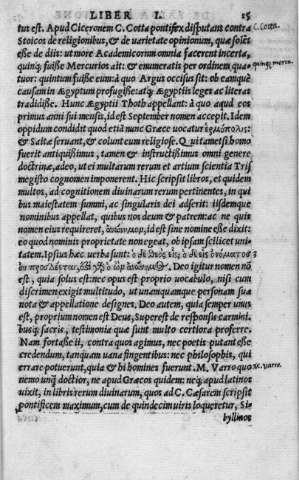 LIBER I. 15
tus est. Apud Ciceronem C. Cotta pontifex disputans contra C. Cotta.
Stoicos de religionibus, & de varietate opinionum, quæ solẽt
esse de diis: ut more Academicorum omnia facerent incerta,
quinq; fuisse Mercurios ait: & enumeratis per ordinem qua-
tuor: quintum fuisse eum: à quo Argus occisus sit: ob eamq̃
causam in Ægyptum profugisse: atq; Ægyptiis leges ac literas
tradidisse. Hunc Ægyptii Thoth appellant: à quo apud eos
primus anni sui mensis, id est September nomen accepit. Idem
oppidum condidit quod etiã nunc Græce vocatur ἑρμόπολις:
& Saitæ feruant, & colunt eum religiose. Qui tametsi homo
fuerit antiquissimus, tamen & instructissimus omni genere
doctrinæ, adeo, ut ei multarum rerum et artium scientia Tris
megisto cognomen imponerent. Hic scripsit libros, et quidem
multos, ad cognitionem diuinarum rerum pertinentes, in qui
bus maiestatem summi, ac singularis dei asserit: iisdemque
nominibus appellat, quibus nos deum & patrem: ac ne quis
nomen eius requireret, ἀνώνυμον, id est sine nomine esse dixit:
eo quod nominis proprietate non egeat, ob ipsam scilicet uni-
tatem. Ipsius hæc uerba sunt: ὁ δὲ
Deo igitur nomen nõ
est, quia solus est: nec opus est proprio uocabulo, nisi cum
discrimen exigit multitudo, ut unamquamque personam sua
nota & appellatione designes. Deo autem, quia semper unus
est, proprium nomen est Deus. Superest de responsis carmini.
busq; sacris, testimonia quæ sunt multo certiora proferre.
Nam fortasse ii, contra quos agimus, nec poetis putant esse
credendum, tanquam uana fingentibus: nec philosophis, qui
errare potuerunt, quia & hi homines fuerunt. M. Varro quo M. Varro.
nemo unq̃ doctior, ne apud Græcos quidem: neq; apud latinos
uixit, in libris rerum diuinarum, quos ad C. Cæsarem scripsit
pontificem maximum, cum de quindecim uiris loqueretur, Si
byllinos